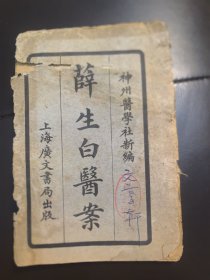 神州醫學社新編
薛生白醫案
上海廣文書局出版